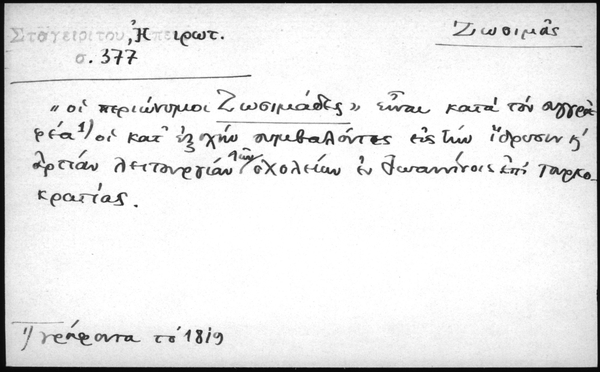 Σταγειρίτου, Ἠπειρωτ.
Ζωσιμᾶς
σ. 377
"οἱ περιώνυμοι Ζωσιμάδες" εἶναι κατά τόν συγγρα-
φέα 1) οἱ κατ' ἐξοχήν συμβαλόντες εἰς τήν ἵδρυσιν κ'
ἀρτίαν λειτουργίαν τῶν σχολείων ἐν Ἰωαννίνοις ἐπί τουρκο-
κρατίας.
1) γράφοντα τό 1819